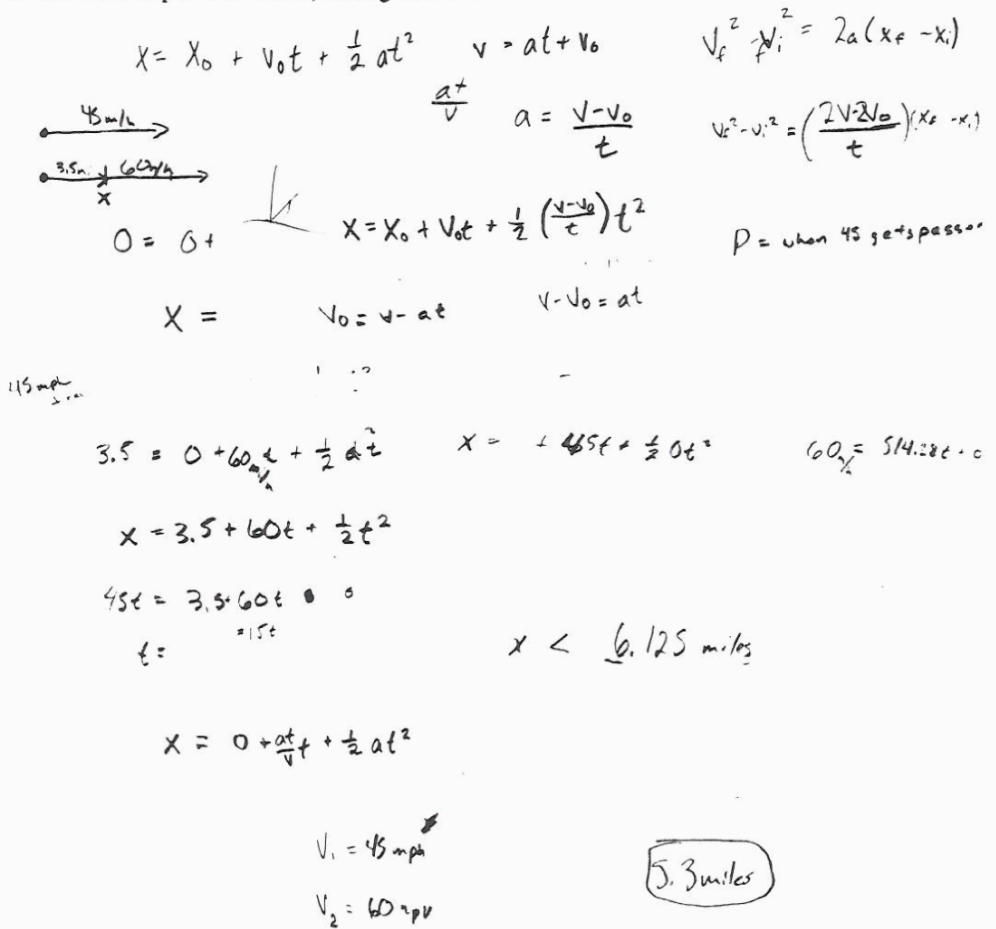 x = x₀ + v₀t + ½ at² v = at + v₀ v_f² - v_i² = 2a(x_f - x_i)
at/v a = (v-v₀)/t v_f² - v_i² = ((2v-2v₀)/t)(x_f - x_i)
45 m/h
3.5m 60m/h
x
0 = 0+ x = x₀ + v₀t + ½((v-v₀)/t)t² P = when 45 gets
x = v₀ = v - at v - v₀ = at
45 mph
3.5 = 0 + 60 m/h t + ½ at² x = + 45t + ½ 0t² 60 = 514.28t + 0
x = 3.5 + 60t + ½t²
45t = 3.5 + 60t
= 15t
t = x < 6.125 miles
x = 0 + at/v t + ½ at²
V₁ = 45 mph
V₂ = 60 mph
5.3 miles